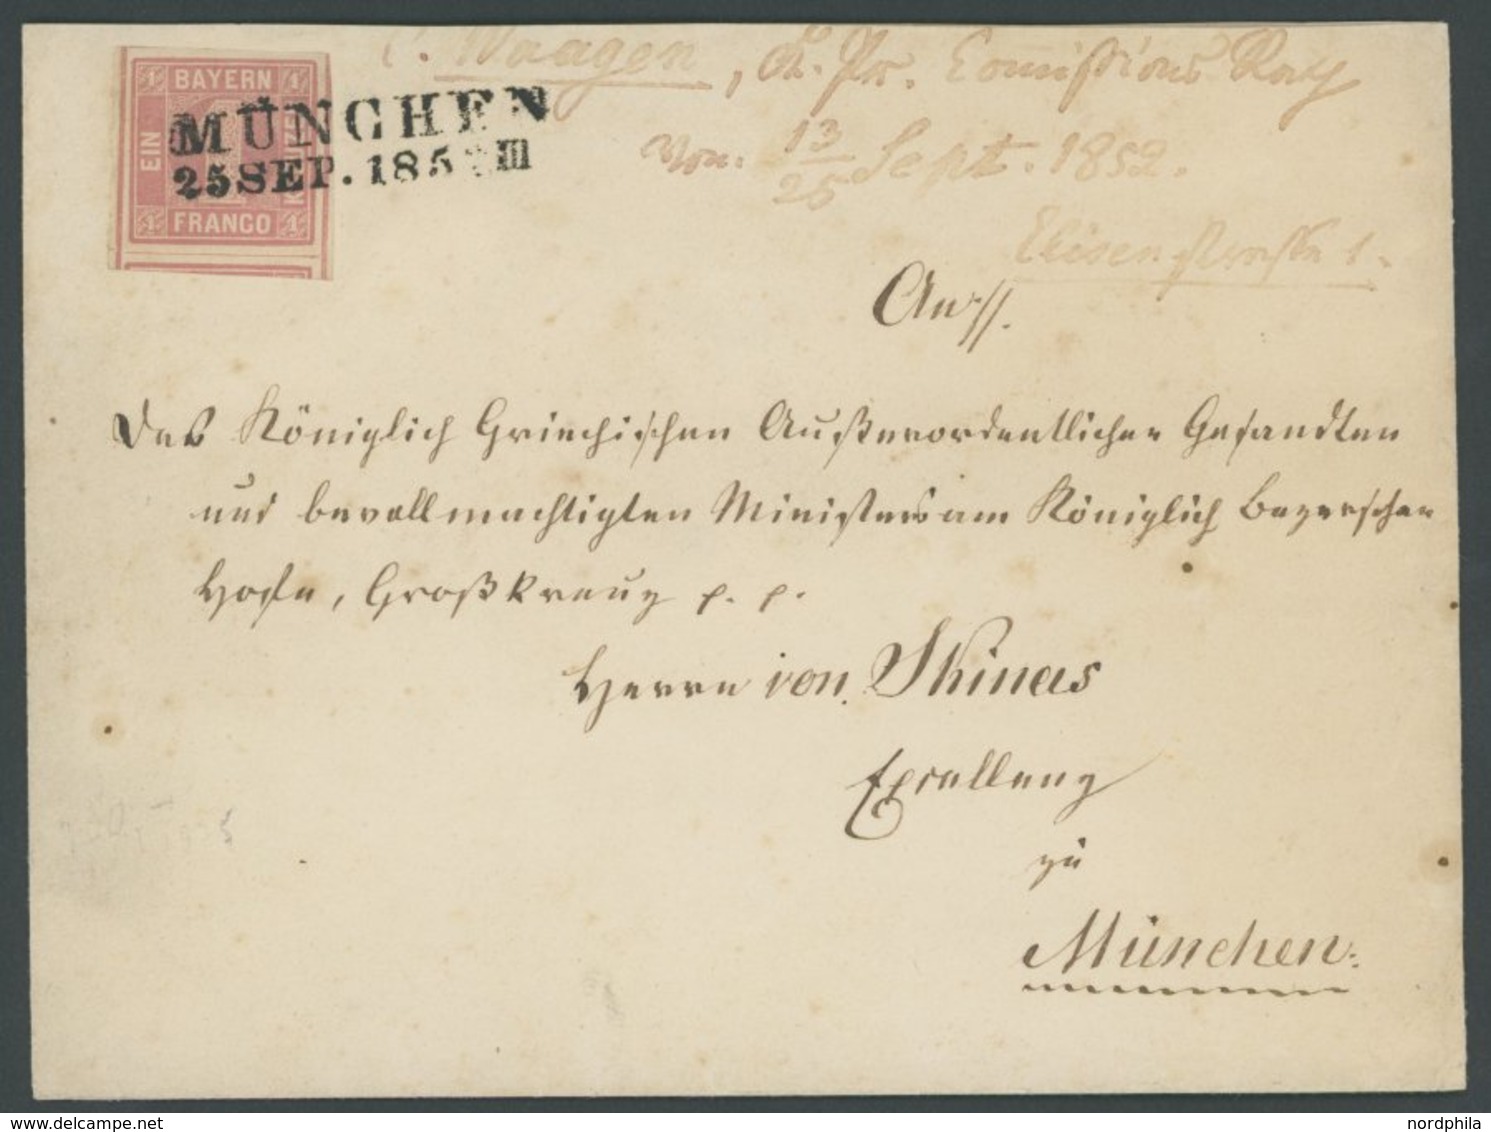 C. Waagen, K. Pr. Commissions Rath
von 13/25 Sept. 1852.
Elisenstraße 1.
1 BAYERN 1
EIN
KREUZER
1 FRANCO 1
MÜNCHEN
25 SEP. 185 III
An
Des Königlich Griechischen Außerordentlichen Gesandten
und bevollmächtigten Ministers am Königlich Bayerschen
Hofe, Großkreuz p. p.
Herrn von Skinas
Excellenz
zu
München.
nordphila